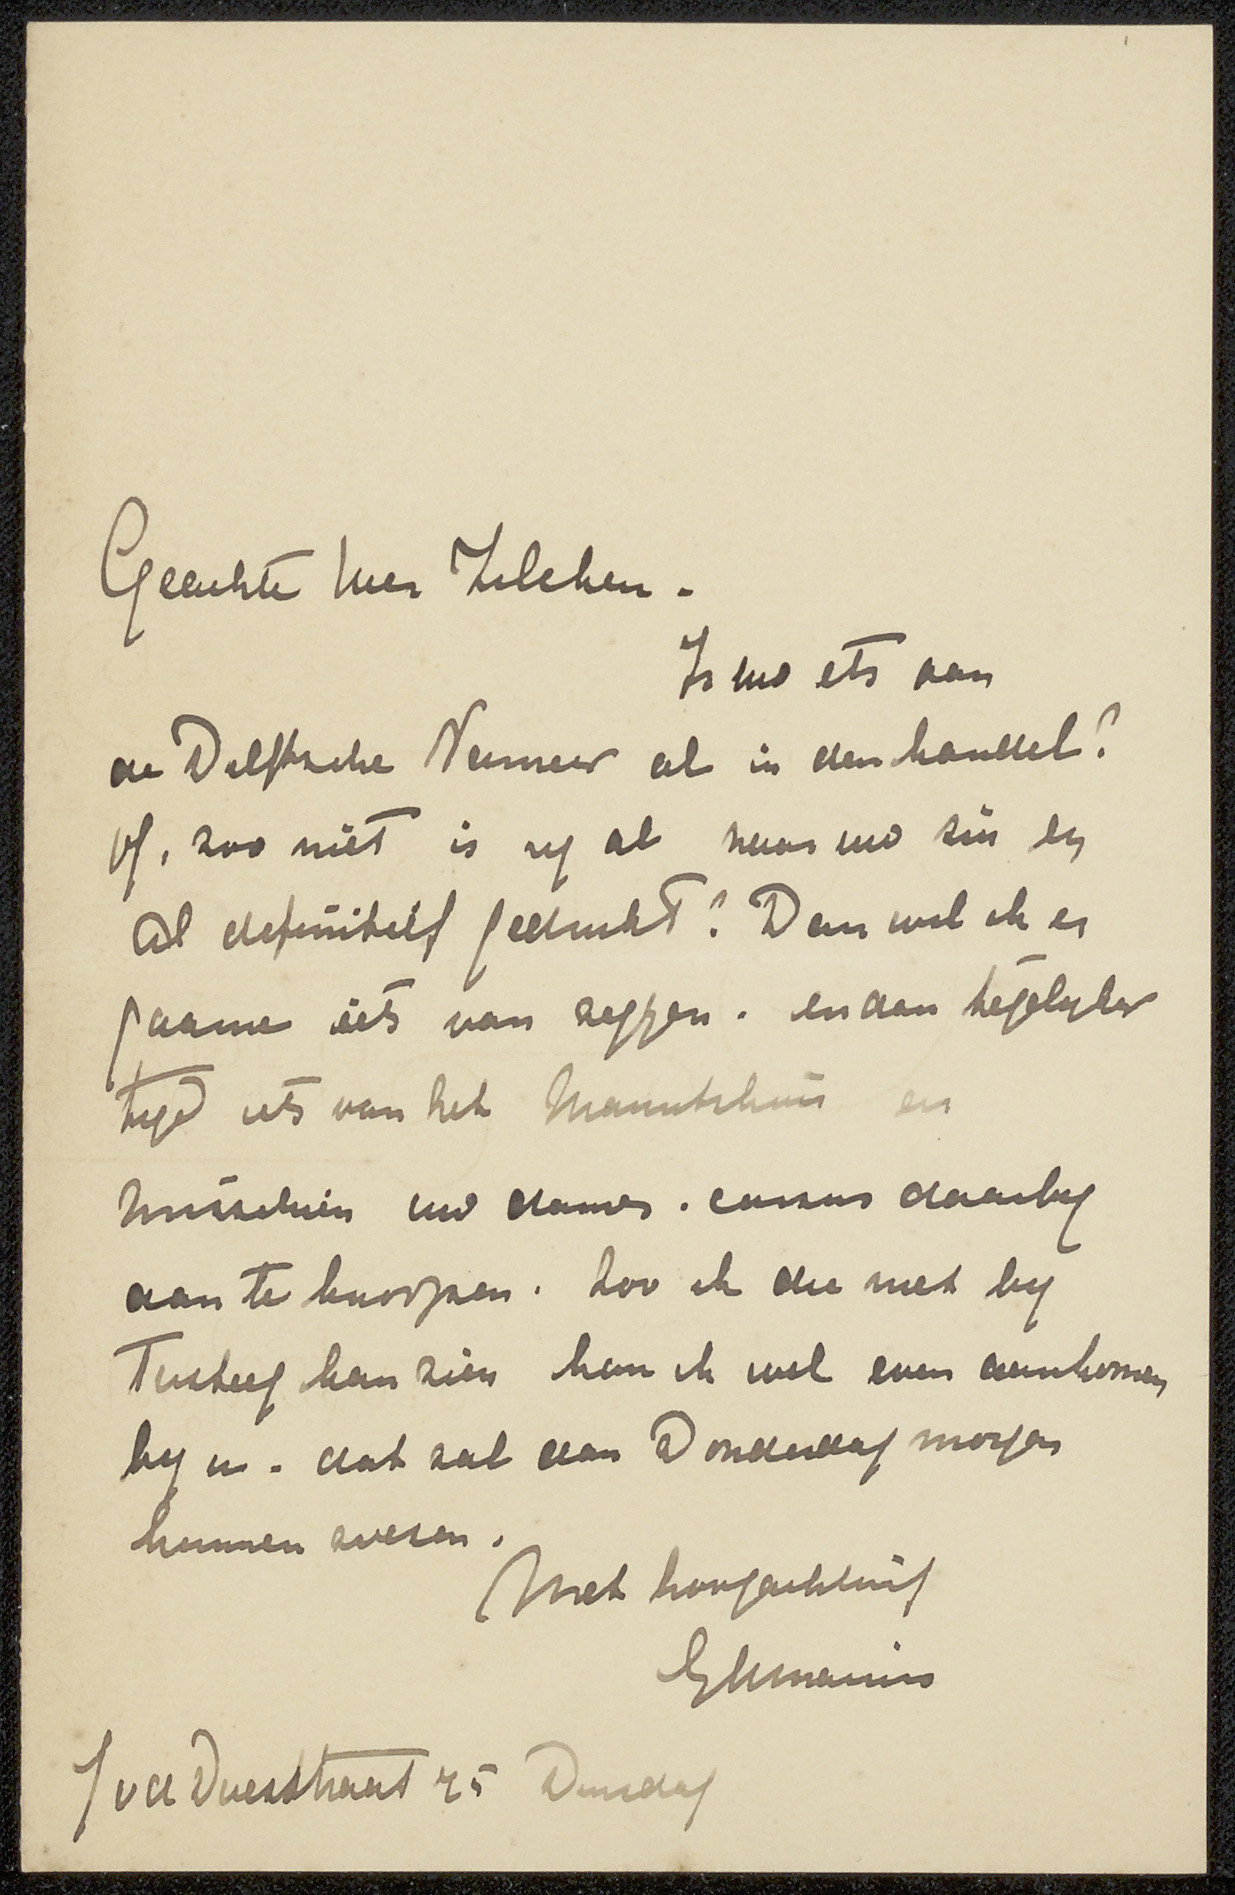 Geachte heer Zilcken.
Is uw ets aan
de Delftsche Vermeer al in den handel?
Of, zoo niet is zy al naar uw zin en
al definitief gedrukt? Dan wil ik er
gaarne iets van zeggen. en dan tegelyker
tyd iets van het Mauritshuis en
misschien uw dames. cursus daarby
aan te knoopen. Zoo ik die niet by
Tersteeg kan zien kan ik wel even aankomen
by u. dat zal dan Donderdag morgen
kunnen wezen.
Met hoogachting
GHMarius
J v d Doesstraat 75 Dinsdag